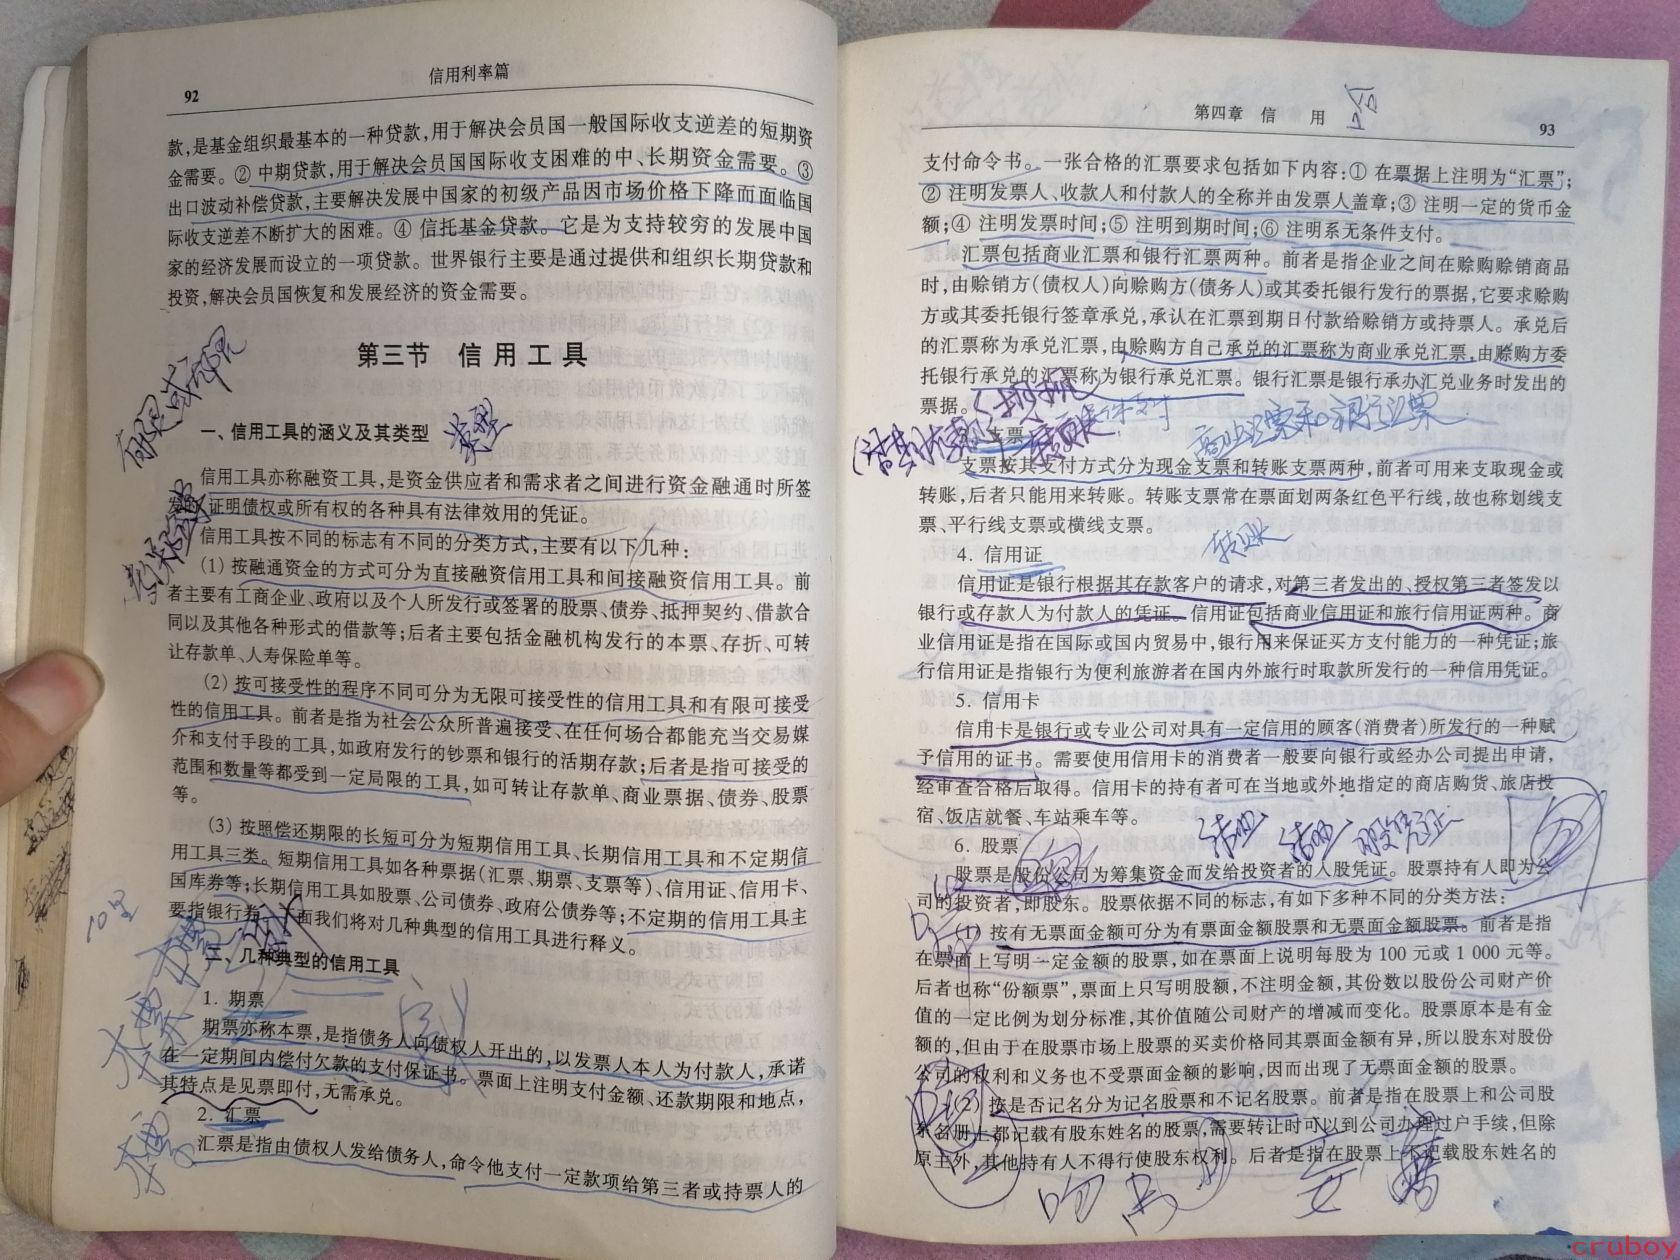 92
信用利率篇
款,是基金组织最基本的一种贷款,用于解决会员国一般国际收支逆差的短期资
金需要。② 中期贷款,用于解决会员国国际收支困难的中、长期资金需要。③
出口波动补偿贷款,主要解决发展中国家的初级产品因市场价格下降而面临国
际收支逆差不断扩大的困难。④ 信托基金贷款。它是为支持较穷的发展中国
家的经济发展而设立的一项贷款。世界银行主要是通过提供和组织长期贷款和
投资,解决会员国恢复和发展经济的资金需要。
第三节 信用工具
一、信用工具的涵义及其类型
类型
信用工具亦称融资工具,是资金供应者和需求者之间进行资金融通时所签
证明债权或所有权的各种具有法律效用的凭证。
信用工具按不同的标志有不同的分类方式,主要有以下几种:
(1) 按融通资金的方式可分为直接融资信用工具和间接融资信用工具。前
者主要有工商企业、政府以及个人所发行或签署的股票、债券、抵押契约、借款合
同以及其他各种形式的借款等;后者主要包括金融机构发行的本票、存折、可转
让存款单、人寿保险单等。
(2) 按可接受性的程序不同可分为无限可接受性的信用工具和有限可接受
性的信用工具。前者是指为社会公众所普遍接受、在任何场合都能充当交易媒
介和支付手段的工具,如政府发行的钞票和银行的活期存款;后者是指可接受的
范围和数量等都受到一定局限的工具,如可转让存款单、商业票据、债券、股票
等。
(3) 按照偿还期限的长短可分为短期信用工具、长期信用工具和不定期信
用工具三类。短期信用工具如各种票据(汇票、期票、支票等)、信用证、信用卡、
国库券等;长期信用工具如股票、公司债券、政府公债券等;不定期的信用工具主
要指银行券。 面我们将对几种典型的信用工具进行释义。
二、几种典型的信用工具
1. 期票
期票亦称本票,是指债务人向债权人开出的,以发票人本人为付款人,承诺
在一定期间内偿付欠款的支付保证书。票面上注明支付金额、还款期限和地点,
其特点是见票即付,无需承兑。
2. 汇票
汇票是指由债权人发给债务人,命令他支付一定款项给第三者或持票人的
本票
本票
第四章 信 用
93
支付命令书。一张合格的汇票要求包括如下内容:① 在票据上注明为“汇票”;
② 注明发票人、收款人和付款人的全称并由发票人盖章;③ 注明一定的货币金
额;④ 注明发票时间;⑤ 注明到期时间;⑥ 注明系无条件支付。
汇票包括商业汇票和银行汇票两种。前者是指企业之间在赊购赊销商品
时,由赊销方(债权人)向赊购方(债务人)或其委托银行发行的票据,它要求赊购
方或其委托银行签章承兑,承认在汇票到期日付款给赊销方或持票人。承兑后
的汇票称为承兑汇票,由赊购方自己承兑的汇票称为商业承兑汇票,由赊购方委
托银行承兑的汇票称为银行承兑汇票。银行汇票是银行承办汇兑业务时发出的
票据。
商业汇票和银行汇票
支票
支票按其支付方式分为现金支票和转账支票两种,前者可用来支取现金或
转账,后者只能用来转账。转账支票常在票面划两条红色平行线,故也称划线支
票、平行线支票或横线支票。
转账
4. 信用证
信用证是银行根据其存款客户的请求,对第三者发出的、授权第三者签发以
银行或存款人为付款人的凭证。信用证包括商业信用证和旅行信用证两种。商
业信用证是指在国际或国内贸易中,银行用来保证买方支付能力的一种凭证;旅
行信用证是指银行为便利旅游者在国内外旅行时取款所发行的一种信用凭证。
5. 信用卡
信用卡是银行或专业公司对具有一定信用的顾客(消费者)所发行的一种赋
予信用的证书。需要使用信用卡的消费者一般要向银行或经办公司提出申请,
经审查合格后取得。信用卡的持有者可在当地或外地指定的商店购货、旅店投
宿、饭店就餐、车站乘车等。
6. 股票
股票是股份公司为筹集资金而发给投资者的入股凭证。股票持有人即为公
司的投资者,即股东。股票依据不同的标志,有如下多种不同的分类方法:
(1) 按有无票面金额可分为有票面金额股票和无票面金额股票。前者是指
在票面上写明一定金额的股票,如在票面上说明每股为 100 元或 1 000 元等。
后者也称“份额票”,票面上只写明股额,不注明金额,其份数以股份公司财产价
值的一定比例为划分标准,其价值随公司财产的增减而变化。股票原本是有金
额的,但由于在股票市场上股票的买卖价格同其票面金额有异,所以股东对股份
公司的权利和义务也不受票面金额的影响,因而出现了无票面金额的股票。
(2) 按是否记名分为记名股票和不记名股票。前者是指在股票上和公司股
东名册上都记载有股东姓名的股票,需要转让时可以到公司办理过户手续,但除
原主外,其他持有人不得行使股东权利。后者是指在股票上不记载股东姓名的
cruboy